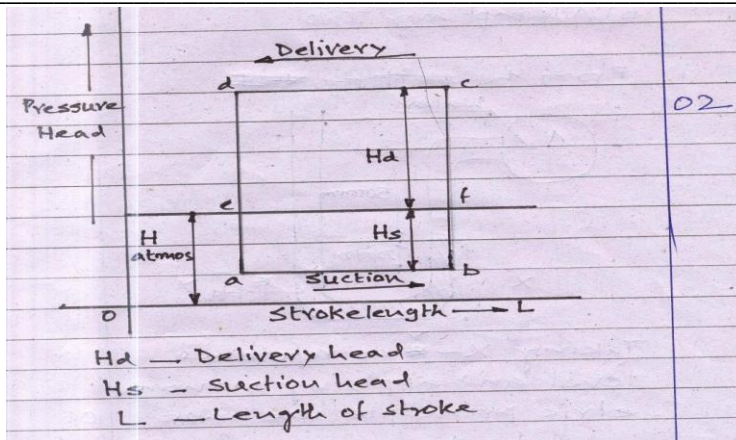 Delivery
d
c
Pressure
Head
02
Hd
e
f
H
atmos
Hs
a
b
Suction
0
Stroke length → L
Hd — Delivery head
Hs - Suction head
L — Length of stroke